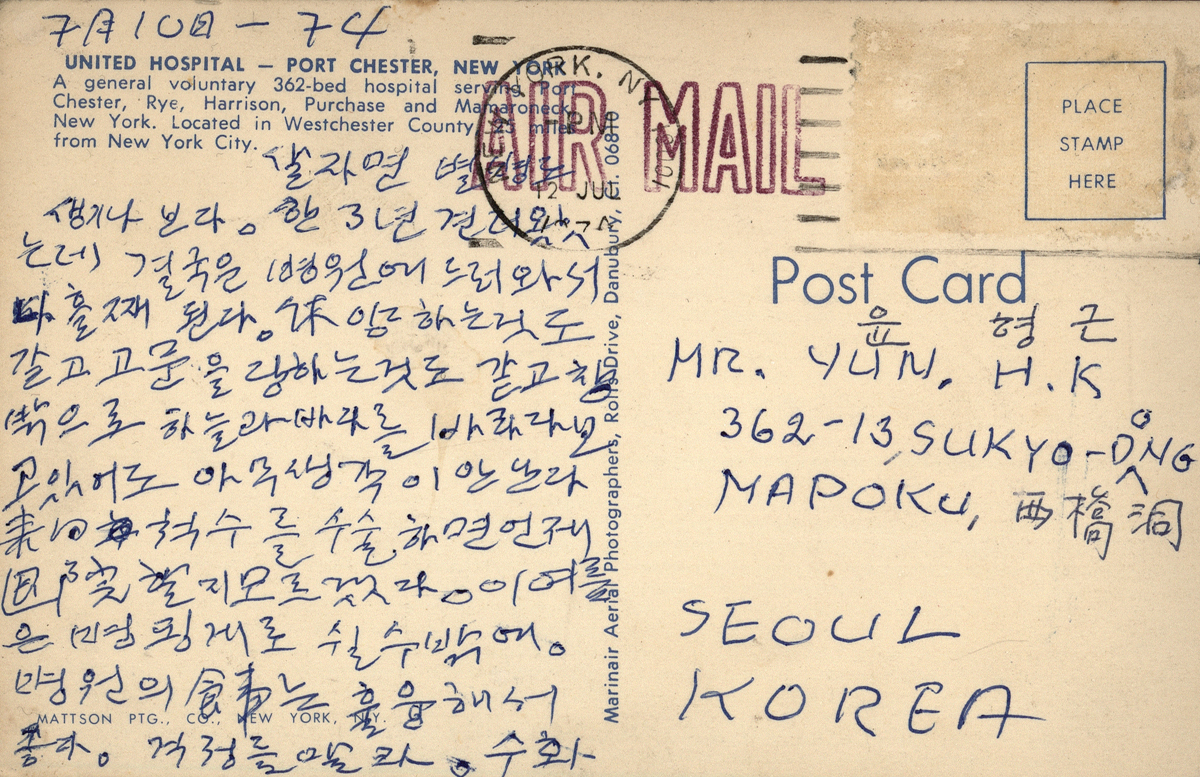 7月10日 - 74
UNITED HOSPITAL — PORT CHESTER, NEW YORK
A general voluntary 362-bed hospital serving Port
Chester, Rye, Harrison, Purchase and Mamaroneck,
New York. Located in Westchester County, 25 miles
from New York City.
살자면 별
생기나 보다. 한 3년 견
는데 결국은 병원에 드러와서
나흘째 된다. 休 하는것도
같고 고문을 당하는것도 같고 창
밖으로 하늘과 바다를 바라다보
고있어도 아무생각이 안난다
来日 척수를 수술하면 언제
退院할지 모르겟다. 이 여름
은 병핑게로 쉴수밖에.
병원의 食事는 훌융해서
좋다. 걱정을 말라. 수화
MATTSON PTG., CO., NEW YORK, N.Y.
Marinair Aerial Photographers, Drive, Danubury, Ct. 06810
AIR MAIL
NEW YORK, NY
PM
12 JUL
PLACE
STAMP
HERE
Post Card
윤 형근
MR. YUN, H.K
362-13, SUKYO-DONG
MAPOKU, 西橋洞
SEOUL
KOREA